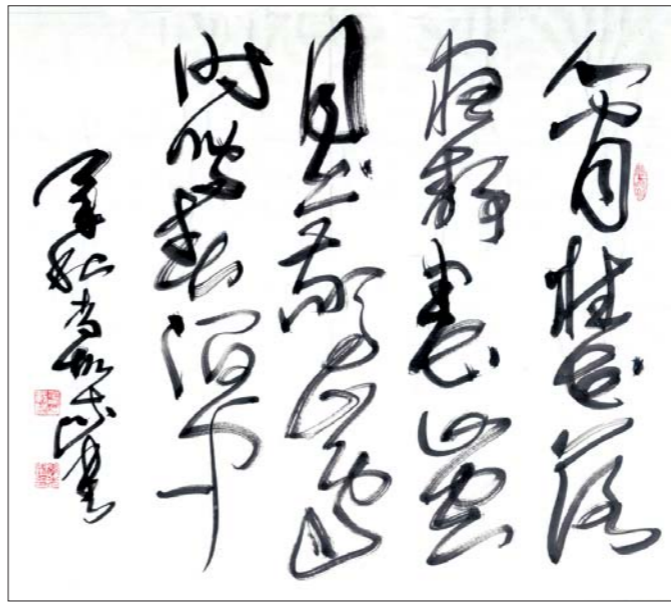 人閒桂花落
夜靜春山空
月出驚山鳥
時鳴春澗中
書